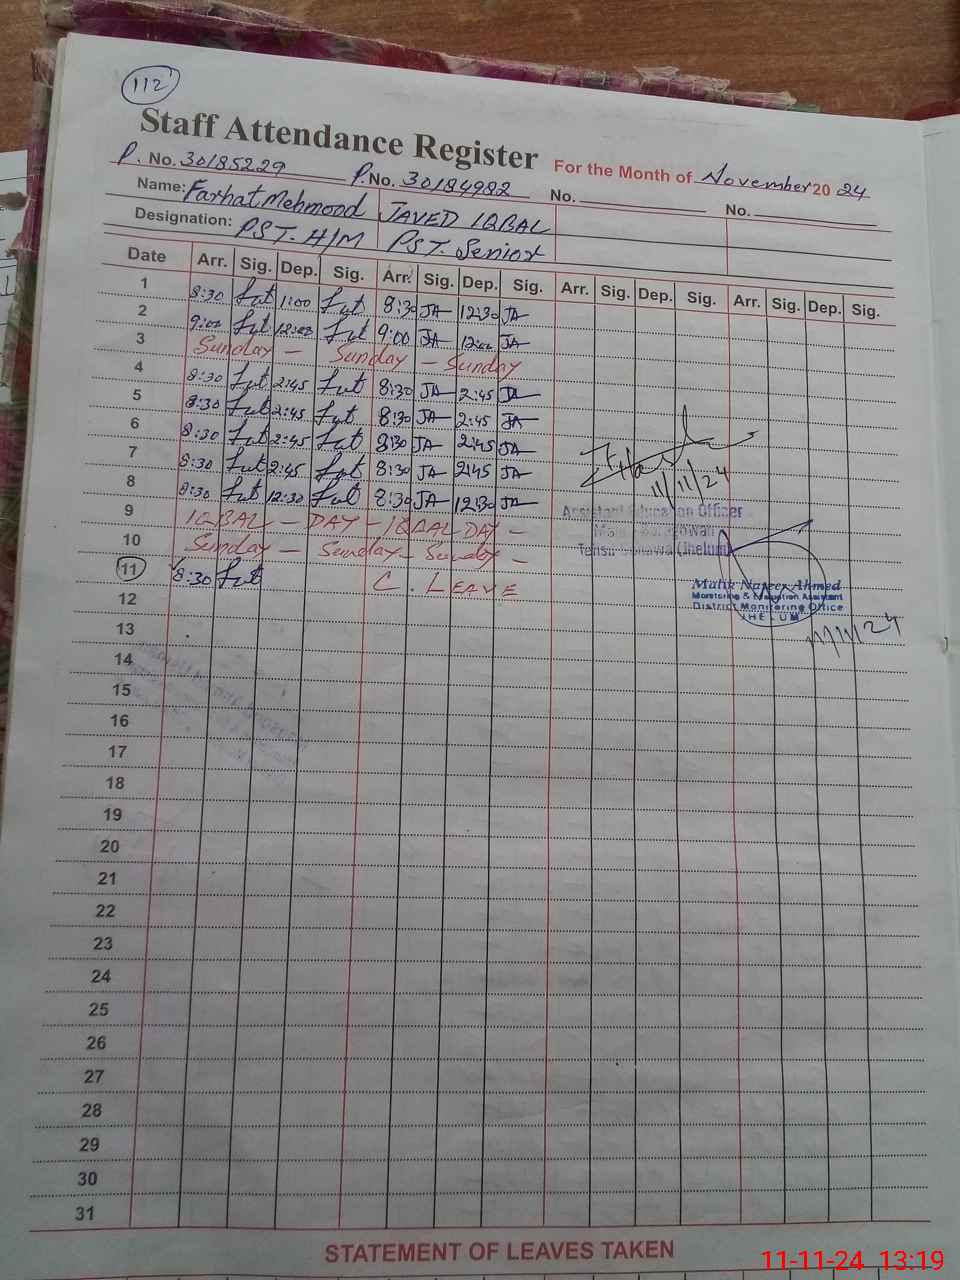 112
Staff Attendance Register For the Month of November 2024
P. No. 30185229 P. No. 30184982 No. No.
Name: Farhat Mehmood JAVED IQBAL
Designation: PST. H/M PST. Senior
Date Arr. Sig. Dep. Sig. Arr. Sig. Dep. Sig. Arr. Sig. Dep. Sig. Arr. Sig. Dep. Sig.
1 8:30 1:00 8:30 JA 12:30 JA
2 9:00 12:00 9:00 JA 12:00 JA
3 Sunday - Sunday - Sunday
4 8:30 2:45 8:30 JA 2:45 JA
5 8:30 2:45 8:30 JA 2:45 JA
6 8:30 2:45 8:30 JA 2:45 JA
7 8:30 2:45 8:30 JA 2:45 JA
8 8:30 12:30 8:30 JA 12:30 JA
11/11/24
9 IQBAL - DAY - IQBAL DAY -
Assistant Education Officer
10 Sunday - Sunday - Sunday -
Tehsil Sohawa (Jhelum)
11 8:30 C. LEAVE
Malik Nazeer Ahmed
Monitoring & Evaluation Assistant
District Monitoring Office
JHELUM
11/11/24
12
13
14
15
16
17
18
19
20
21
22
23
24
25
26
27
28
29
30
31
STATEMENT OF LEAVES TAKEN
11-11-24 13:19